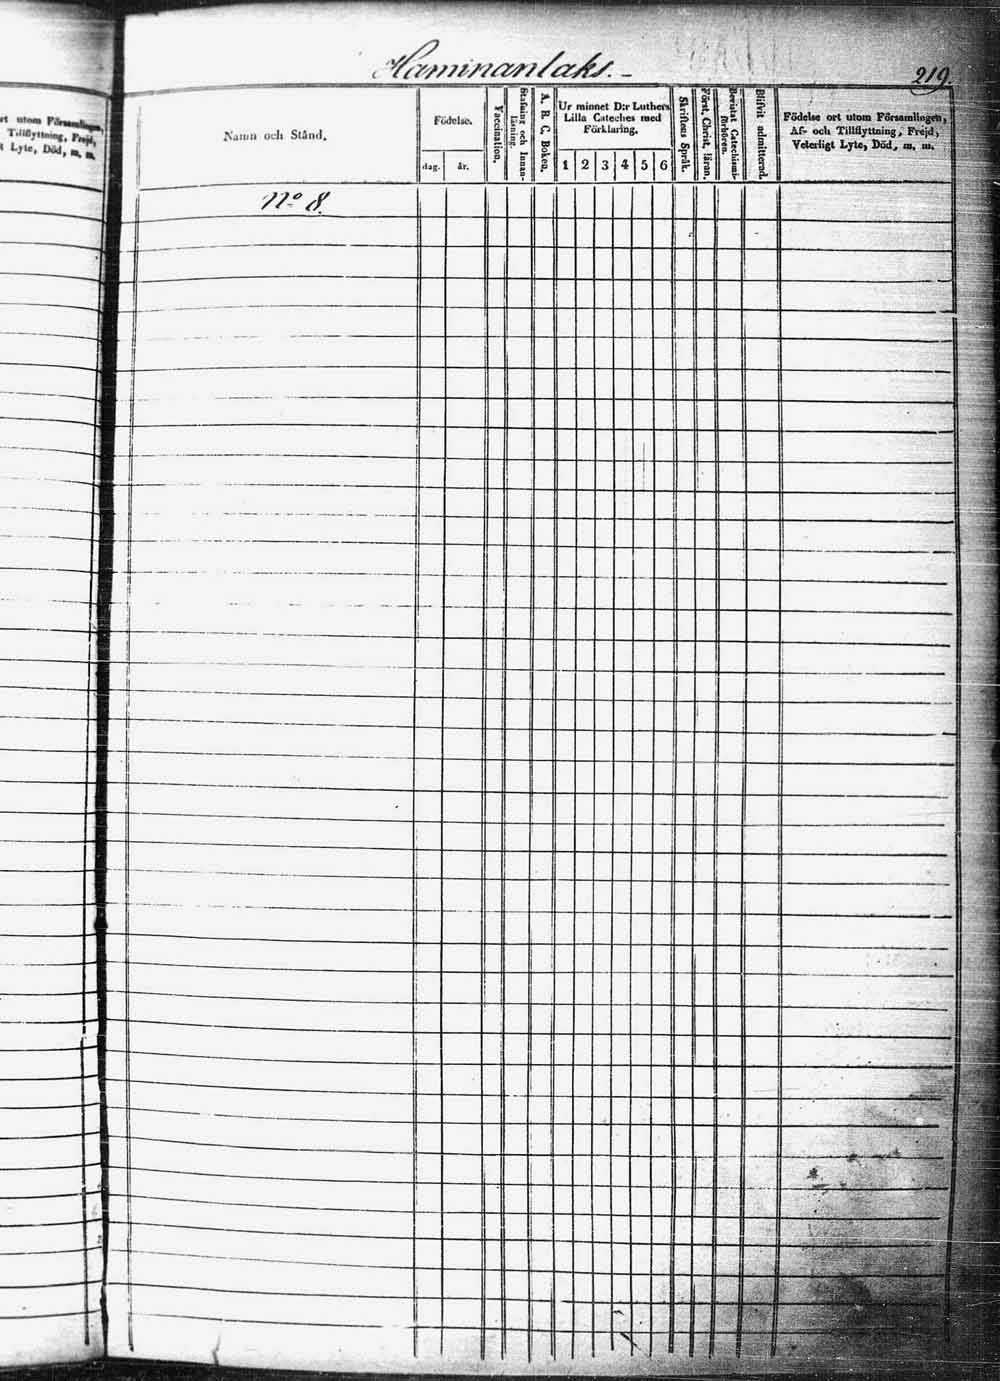 Haminanlaks. -
219.
ort utom Församlingen,
Tillflyttning, Frejd,
t Lyte, Död, m. m.
Namn och Stånd,
Födelse.
dag.
år.
Vaccination.
Stafning och Innan-
läsning.
A. B. C. Boken.
Ur minnet D:r Luthers
Lilla Cateches med
Förklaring.
1 2 3 4 5 6
Skriftens Språk.
Först. Christ. läran.
Bevistat Catechismi-
förhören.
Blifvit admitterad.
Födelse ort utom Församlingen,
Af- och Tillflyttning, Frejd,
Veterligt Lyte, Död, m. m.
No 8.